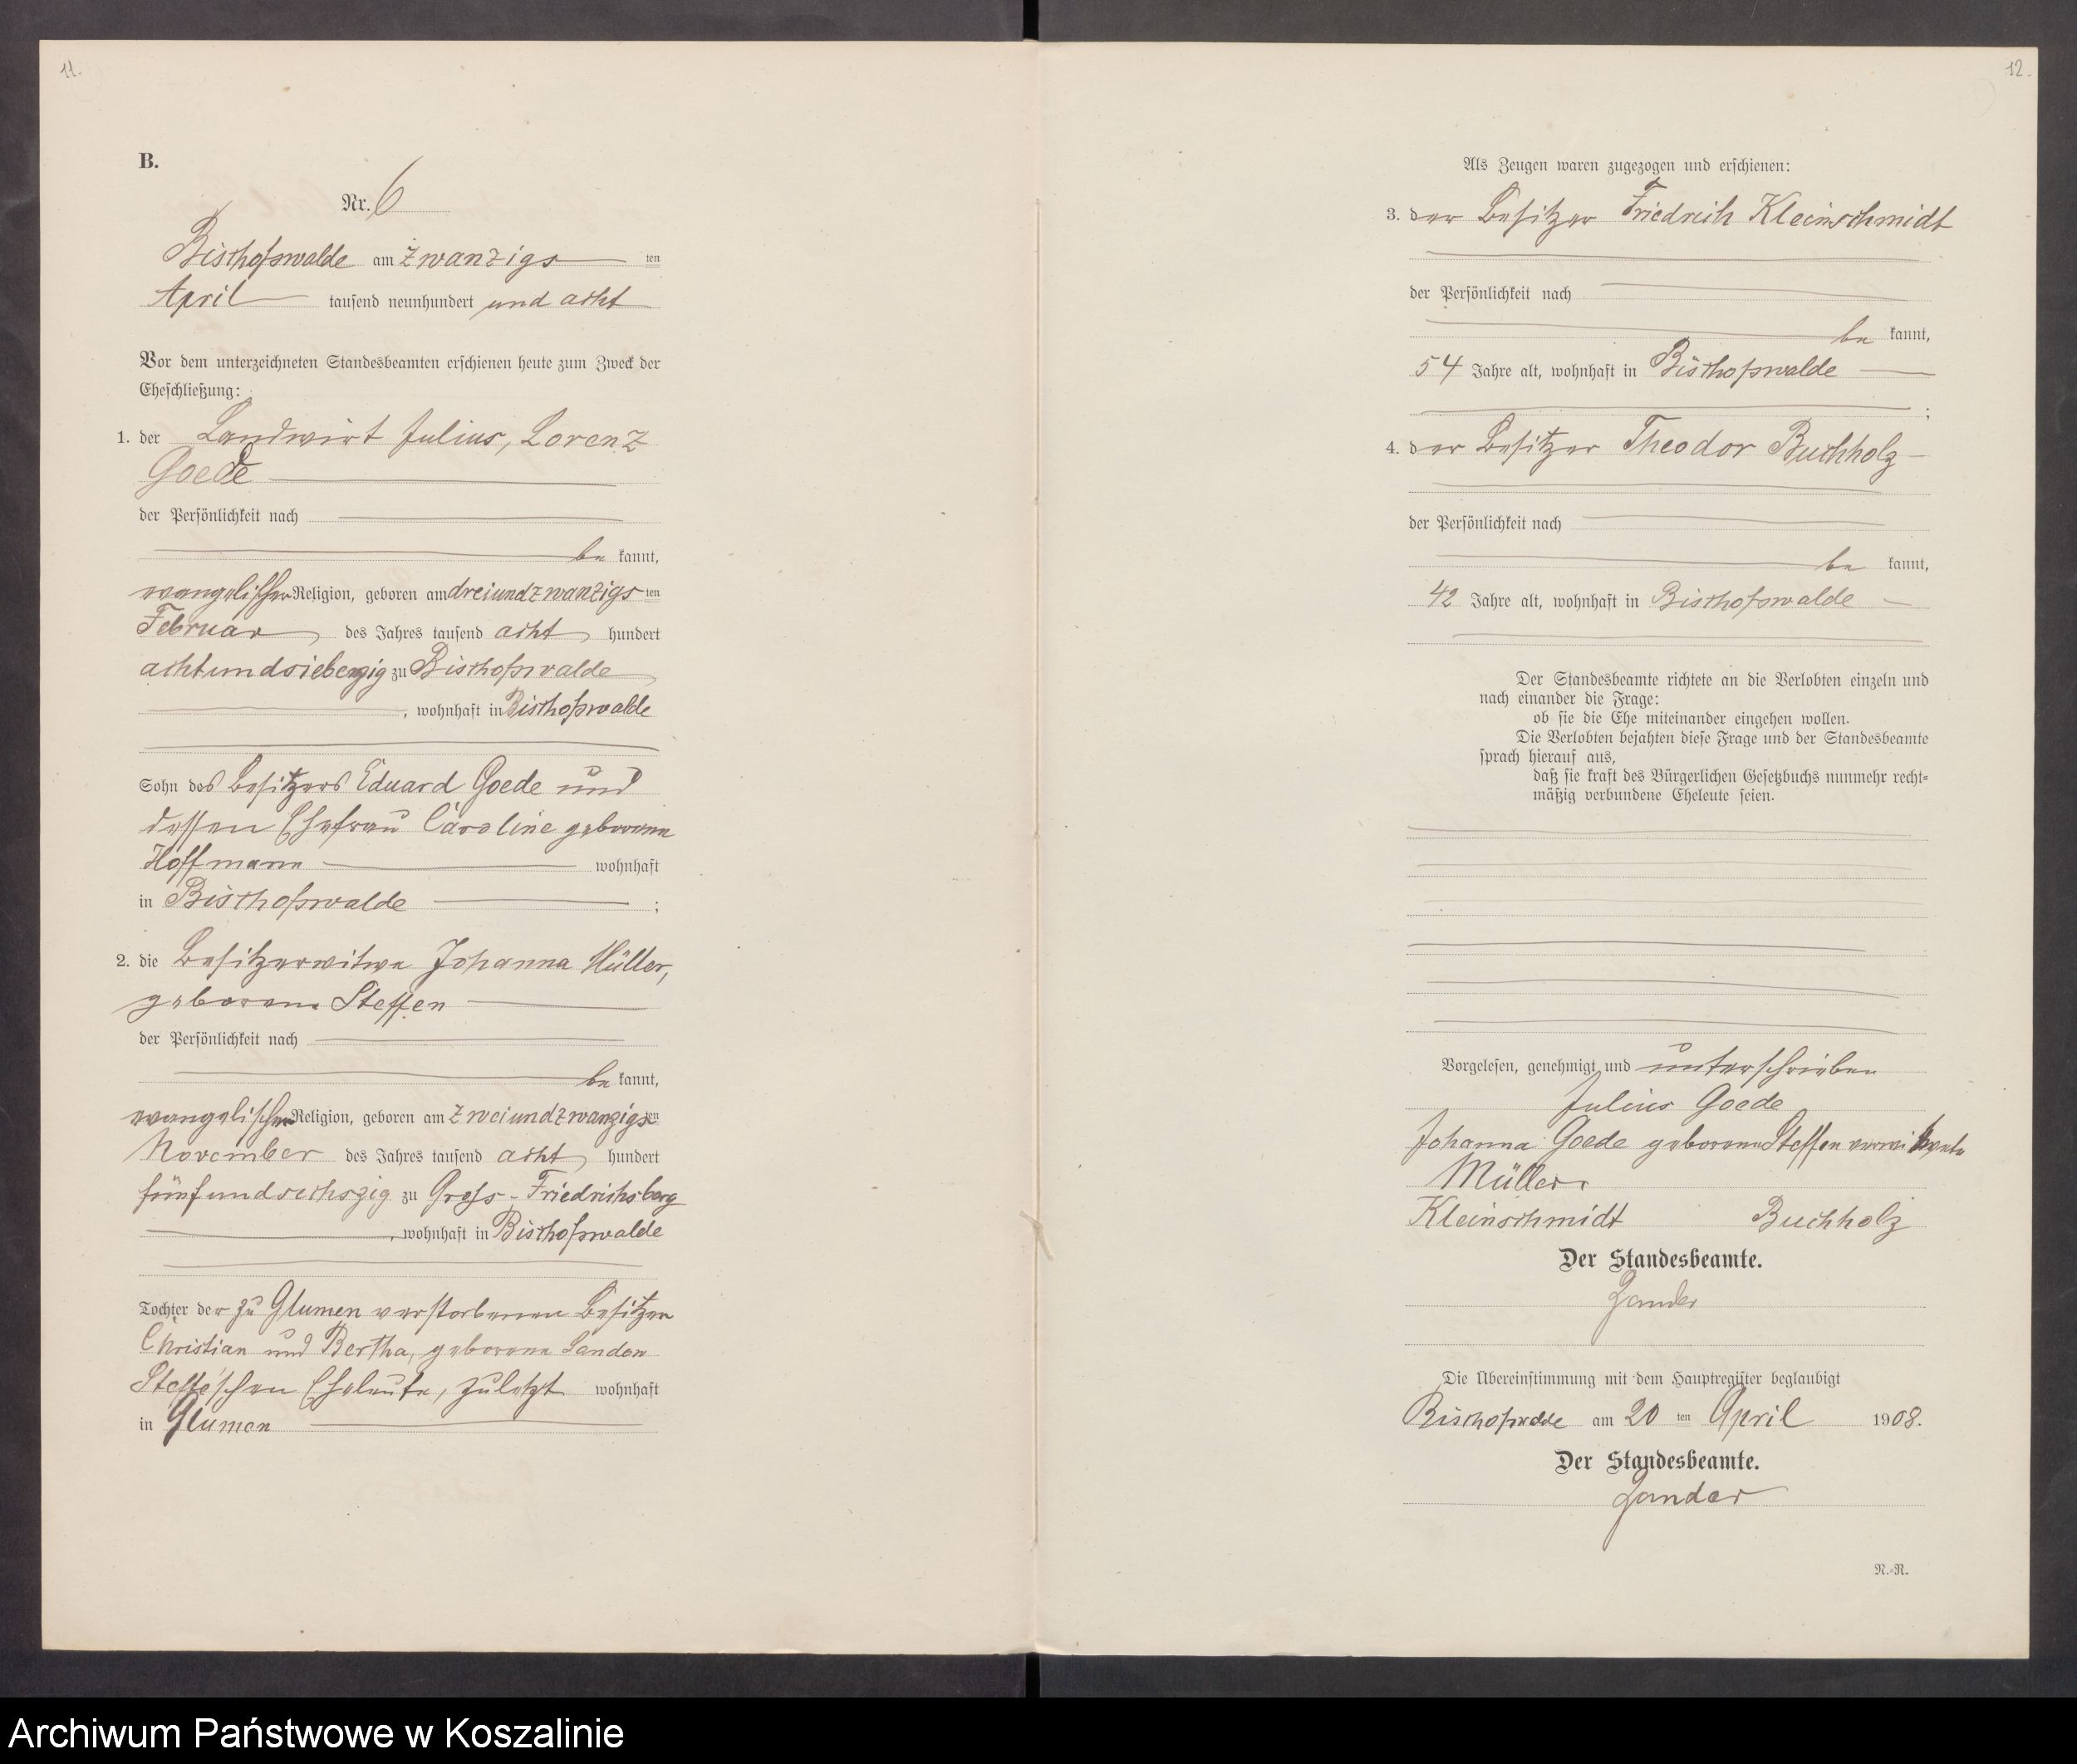 11.
B.
Nr. 6
Bischofswalde am zwanzigs ten
April tausend neunhundert und acht
Vor dem unterzeichneten Standesbeamten erschienen heute zum Zweck der
Eheschließung:
1. der Landwirt Julius, Lorenz
Goede
der Persönlichkeit nach
be kannt,
evangelischer Religion, geboren am dreiundzwanzigs ten
Februar des Jahres tausend acht hundert
achtundsiebenzig zu Bischofswalde
, wohnhaft in Bischofswalde
Sohn des Besitzers Eduard Goede und
dessen Ehefrau Caroline geborene
Hoffmann wohnhaft
in Bischofswalde ;
2. die Besitzerwitwe Johanna Müller,
geborene Steffen
der Persönlichkeit nach
be kannt,
evangelischer Religion, geboren am zweiundzwanzigs ten
November des Jahres tausend acht hundert
fünfundsechszig zu Gross-Friedrichsberg
, wohnhaft in Bischofswalde
Tochter der zu Glumen verstorbenen Besitzer
Christian und Bertha, geborene Sandow
Steffe'schen Eheleute, zuletzt wohnhaft
in Glumen
12.
Als Zeugen waren zugezogen und erschienen:
3. der Besitzer Friedrich Kleinschmidt
der Persönlichkeit nach
be kannt,
54 Jahre alt, wohnhaft in Bischofswalde
;
4. der Besitzer Theodor Buchholz
der Persönlichkeit nach
be kannt,
42 Jahre alt, wohnhaft in Bischofswalde
Der Standesbeamte richtete an die Verlobten einzeln und
nach einander die Frage:
ob sie die Ehe miteinander eingehen wollen.
Die Verlobten bejahten diese Frage und der Standesbeamte
sprach hierauf aus,
daß sie kraft des Bürgerlichen Gesetzbuchs nunmehr recht-
mäßig verbundene Eheleute seien.
Vorgelesen, genehmigt und unterschrieben
Julius Goede
Johanna Goede geborene Steffen verwitwete
Müller.
Kleinschmidt Buchholz
Der Standesbeamte.
Zander
Die Übereinstimmung mit dem Hauptregister beglaubigt
Bischofswalde am 20 ten April 1908.
Der Standesbeamte.
Zander
N.-R.
Archiwum Państwowe w Koszalinie